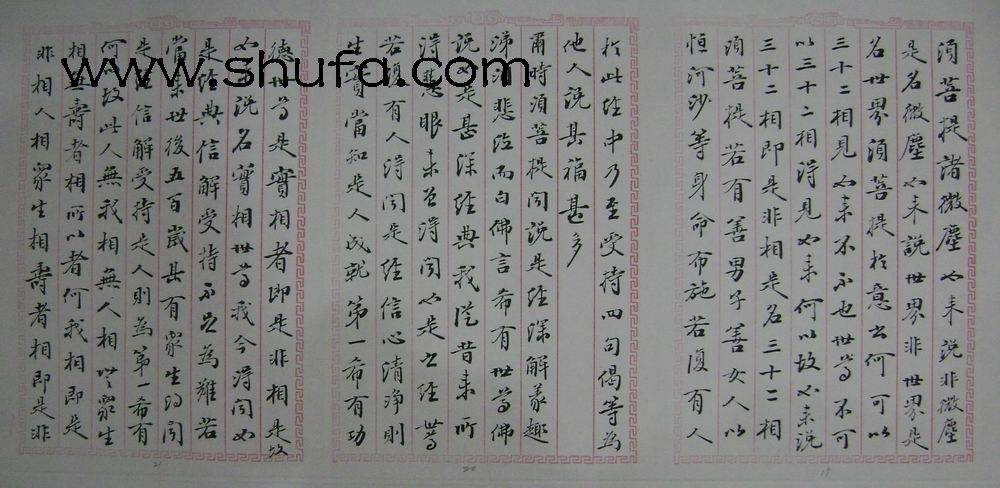 須菩提諸微塵如來說非微塵
是名微塵如來說世界非世界是
名世界須菩提於意云何可以
三十二相見如來不不也世尊不可
以三十二相得見如來何以故如來說
三十二相即是非相是名三十二相
須菩提若有善男子善女人以
恒河沙等身命布施若復有人
19
於此經中乃至受持四句偈等為
他人說其福甚多
爾時須菩提聞說是經深解義趣
涕淚悲泣而白佛言希有世尊佛
說如是甚深經典我從昔來所
得慧眼未曾得聞如是之經世尊
若復有人得聞是經信心清淨則
生實當知是人成就第一希有功
20
德世尊是實相者即是非相是故
如來說名實相世尊我今得聞如
是經典信解受持不足為難若
當來世後五百歲其有眾生得聞
是經信解受持是人則為第一希有
何以故此人無我相無人相無眾生
相無壽者相所以者何我相即是
非相人相眾生相壽者相即是非
21
www.shufa.com